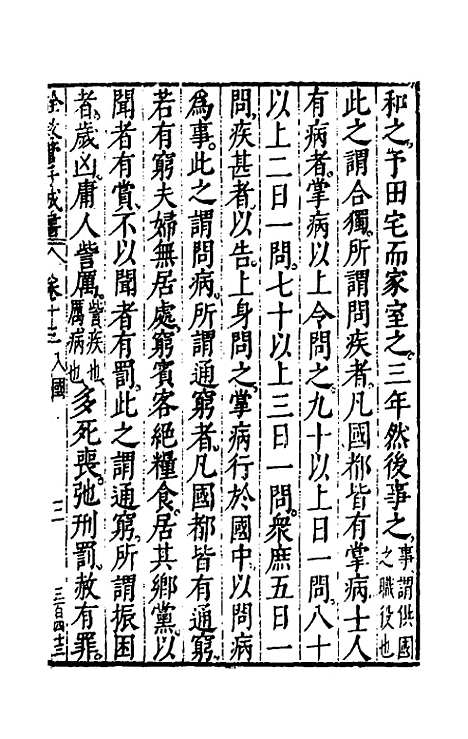 和之。予田宅而家室之。三年然後事之。事謂供國之職役也
此之謂合獨。所謂問疾者。凡國都皆有掌病。士人
有病者。掌病以上令問之。九十以上日一問。八十
以上二日一問。七十以上三日一問。衆庶五日一
問。疾甚者以告。上身問之。掌病行於國中。以問病
爲事。此之謂問病。所謂通窮者。凡國都皆有通窮。
若有窮夫婦無居處。窮賓客絕糧食。居其鄉黨以
聞者有賞。不以聞者有罰。此之謂通窮。所謂振困
者。歲凶。庸人訾厲。訾疾也厲病也多死喪。弛刑罰。赦有罪。
管子成書 卷十三 入國 二